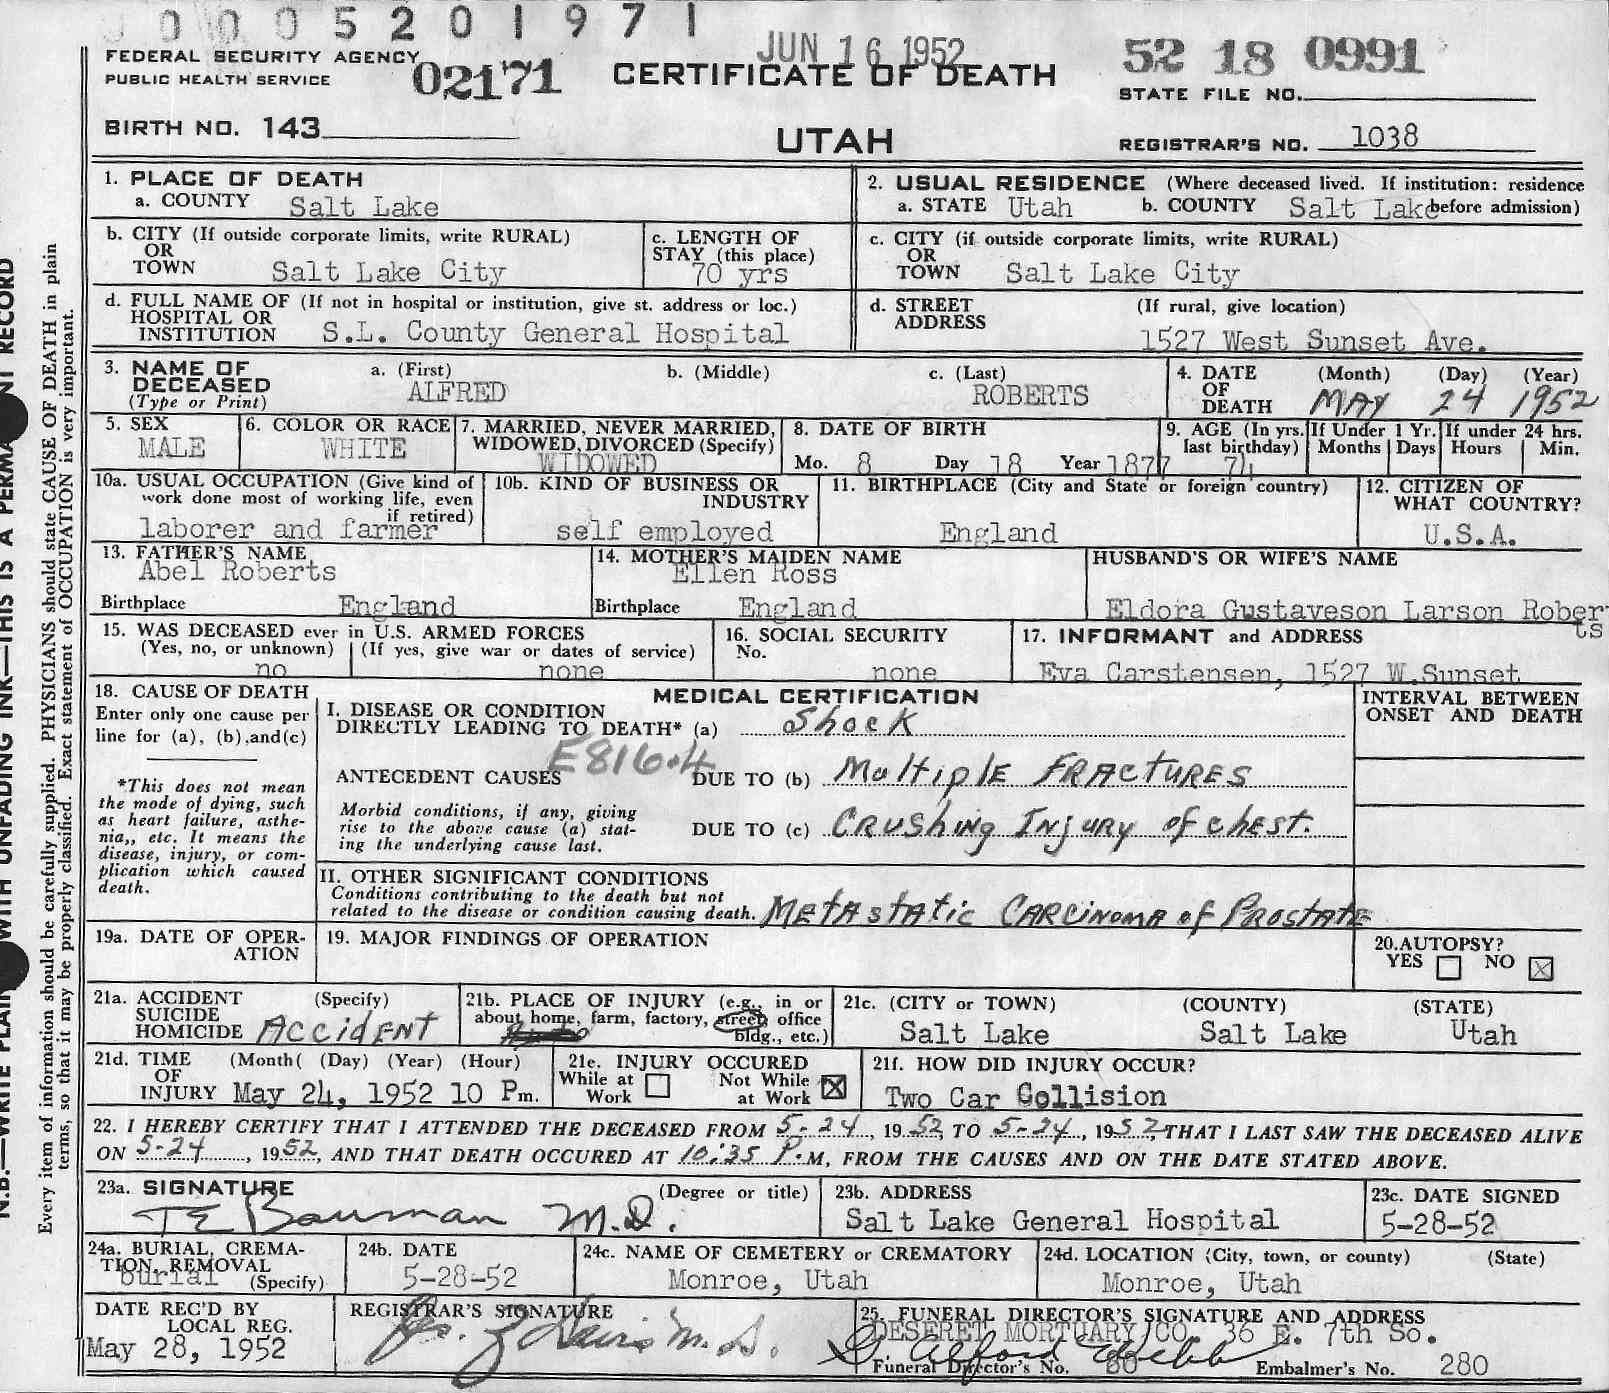 0005201971
JUN 16 1952
FEDERAL SECURITY AGENCY
PUBLIC HEALTH SERVICE
02171
CERTIFICATE OF DEATH
52 18 0991
STATE FILE NO.
BIRTH NO. 143
UTAH
REGISTRAR'S NO. 1038
1. PLACE OF DEATH
a. COUNTY Salt Lake
2. USUAL RESIDENCE (Where deceased lived. If institution: residence before admission)
a. STATE Utah b. COUNTY Salt Lake
b. CITY (If outside corporate limits, write RURAL)
OR
TOWN Salt Lake City
c. LENGTH OF
STAY (this place)
70 yrs
c. CITY (if outside corporate limits, write RURAL)
OR
TOWN Salt Lake City
d. FULL NAME OF (If not in hospital or institution, give st. address or loc.)
HOSPITAL OR
INSTITUTION S.L. County General Hospital
d. STREET (If rural, give location)
ADDRESS
1527 West Sunset Ave.
3. NAME OF DECEASED
(Type or Print)
a. (First) b. (Middle) c. (Last)
ALFRED ROBERTS
4. DATE OF DEATH
(Month) (Day) (Year)
MAY 24 1952
5. SEX
MALE
6. COLOR OR RACE
WHITE
7. MARRIED, NEVER MARRIED,
WIDOWED, DIVORCED (Specify)
WIDOWED
8. DATE OF BIRTH
Mo. 8 Day 18 Year 1877
9. AGE (In yrs. last birthday)
74
If Under 1 Yr.
Months Days
If under 24 hrs.
Hours Min.
10a. USUAL OCCUPATION (Give kind of
work done most of working life, even
if retired)
laborer and farmer
10b. KIND OF BUSINESS OR
INDUSTRY
self employed
11. BIRTHPLACE (City and State or foreign country)
England
12. CITIZEN OF
WHAT COUNTRY?
U.S.A.
13. FATHER'S NAME
Abel Roberts
Birthplace England
14. MOTHER'S MAIDEN NAME
Ellen Ross
Birthplace England
HUSBAND'S OR WIFE'S NAME
Eldora Gustaveson Larson Rober
ts
15. WAS DECEASED ever in U.S. ARMED FORCES
(Yes, no, or unknown) (If yes, give war or dates of service)
no none
16. SOCIAL SECURITY
No.
none
17. INFORMANT and ADDRESS
Eva Carstensen, 1527 W.Sunset
18. CAUSE OF DEATH
Enter only one cause per
line for (a), (b),and(c)
*This does not mean
the mode of dying, such
as heart failure, asthe-
nia,, etc. It means the
disease, injury, or com-
plication which caused
death.
MEDICAL CERTIFICATION
INTERVAL BETWEEN
ONSET AND DEATH
I. DISEASE OR CONDITION
DIRECTLY LEADING TO DEATH* (a) Shock
E816.4
ANTECEDENT CAUSES DUE TO (b) Multiple FRACTURES
Morbid conditions, if any, giving
rise to the above cause (a) stat-
ing the underlying cause last.
DUE TO (c) CRUSHING INJURY of chest.
II. OTHER SIGNIFICANT CONDITIONS
Conditions contributing to the death but not
related to the disease or condition causing death. METASTATIC CARCINOMA of PROSTATE
19a. DATE OF OPER-
ATION
19. MAJOR FINDINGS OF OPERATION
20.AUTOPSY?
YES NO X
21a. ACCIDENT (Specify)
SUICIDE
HOMICIDE ACCIDENT
21b. PLACE OF INJURY (e.g., in or
about home, farm, factory, street, office
bldg., etc.)
21c. (CITY or TOWN) (COUNTY) (STATE)
Salt Lake Salt Lake Utah
21d. TIME (Month( (Day) (Year) (Hour)
OF
INJURY May 24, 1952 10 Pm.
21e. INJURY OCCURED
While at Work Not While at Work X
21f. HOW DID INJURY OCCUR?
Two Car Collision
22. I HEREBY CERTIFY THAT I ATTENDED THE DECEASED FROM 5-24, 1952, TO 5-24, 1952, THAT I LAST SAW THE DECEASED ALIVE
ON 5-24, 1952, AND THAT DEATH OCCURED AT 10:35 P.M, FROM THE CAUSES AND ON THE DATE STATED ABOVE.
23a. SIGNATURE (Degree or title)
T E Bauman M.D.
23b. ADDRESS
Salt Lake General Hospital
23c. DATE SIGNED
5-28-52
24a. BURIAL, CREMA-
TION, REMOVAL
(Specify)
burial
24b. DATE
5-28-52
24c. NAME OF CEMETERY or CREMATORY
Monroe, Utah
24d. LOCATION (City, town, or county) (State)
Monroe, Utah
DATE REC'D BY
LOCAL REG.
May 28, 1952
REGISTRAR'S SIGNATURE
M.D.
25. FUNERAL DIRECTOR'S SIGNATURE AND ADDRESS
DESERET MORTUARY CO. 36 E. 7th So.
Funeral Director's No. 80 Embalmer's No. 280
N.B.—WRITE PLAIN WITH UNFADING INK—THIS IS A PERMA NT RECORD
Every item of information should be carefully supplied. PHYSICIANS should state CAUSE OF DEATH in plain
terms, so that it may be properly classified. Exact statement of OCCUPATION is very important.